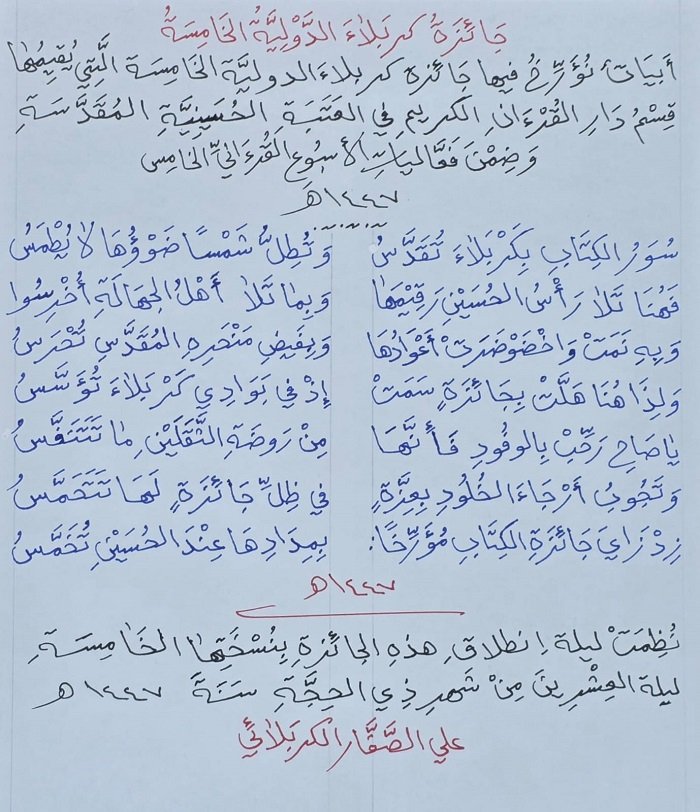 جَائِزَةُ كربَلَاءَ الدَّوْلِيَّةُ الخَامِسَةُ
أبيَاتٌ نُؤَرِّخُ فيها جَائزة كربلاءَ الدوليَّة الخَامِسَة الَّتي يُقِيمُها
قِسْمُ دَارِ القُرْءَانِ الكريمِ في العَتَبَةِ الحُسَينِيَّةِ المُقَدَّسَةِ
وَضِمْنَ فَعَّالياتِ الأُسْبُوعِ القُرءَانِيِّ الخَامِسِ
١٤٤٧هـ
سُوَرُ الكِتَابِ بِكَرْبَلَاءَ تُقَدَّسُ وَتُطِلُّ شَمْسًا ضَوْؤُهَا لَا يُطْمَسُ
فَهُنَا تَلَا رَأْسُ الحُسَيْنِ رَقِيْمَهَا وَبِمَا تَلَا أَهْلُ الجَهَالَةِ أُخْرِسُوا
وَبِهِ نَمَتْ وَاخْضَوْضَرَتْ أَعْوَادُهَا وَبِفَيضِ مَنْحَرِهِ المُقَدَّسِ تُحْرَسُ
وَلِذَا هُنَا هَلَّتْ بِجَائِزَةٍ سَمَتْ إِذْ في بَوَادِي كَرْبَلَاءَ تُؤَسَّسُ
يَا صَاحِ رَحِّبْ بِالوفُودِ فَأَنَّهَا مِنْ رَوضَةِ الثَّقَلَيْنِ مَا تَتَنَفَّسُ
وَتَجُوبُ أَرْجَاءَ الخُلُودِ بِعِزَّةٍ في ظِلِّ جَائِزَةٍ لَهَا تَتَحَمَّسُ
زِدْ زَايَ جَائِزَةِ الكِتَابِ مُؤَرِّخًا: بِمِدَادِهَا عِنْدَ الحُسَيْنِ تُخَمَّسُ
١٤٤٧هـ
نُظِمَتْ ليلة انطلاقِ هذهِ الجائزةِ بِنُسْخَتِهَا الخَامِسَةِ
ليلة العِشْرِينَ مِنْ شَهرِ ذِي الحِجَّةِ سَنَةَ ١٤٤٧هـ
علي الصَّفَّار الكربَلائي